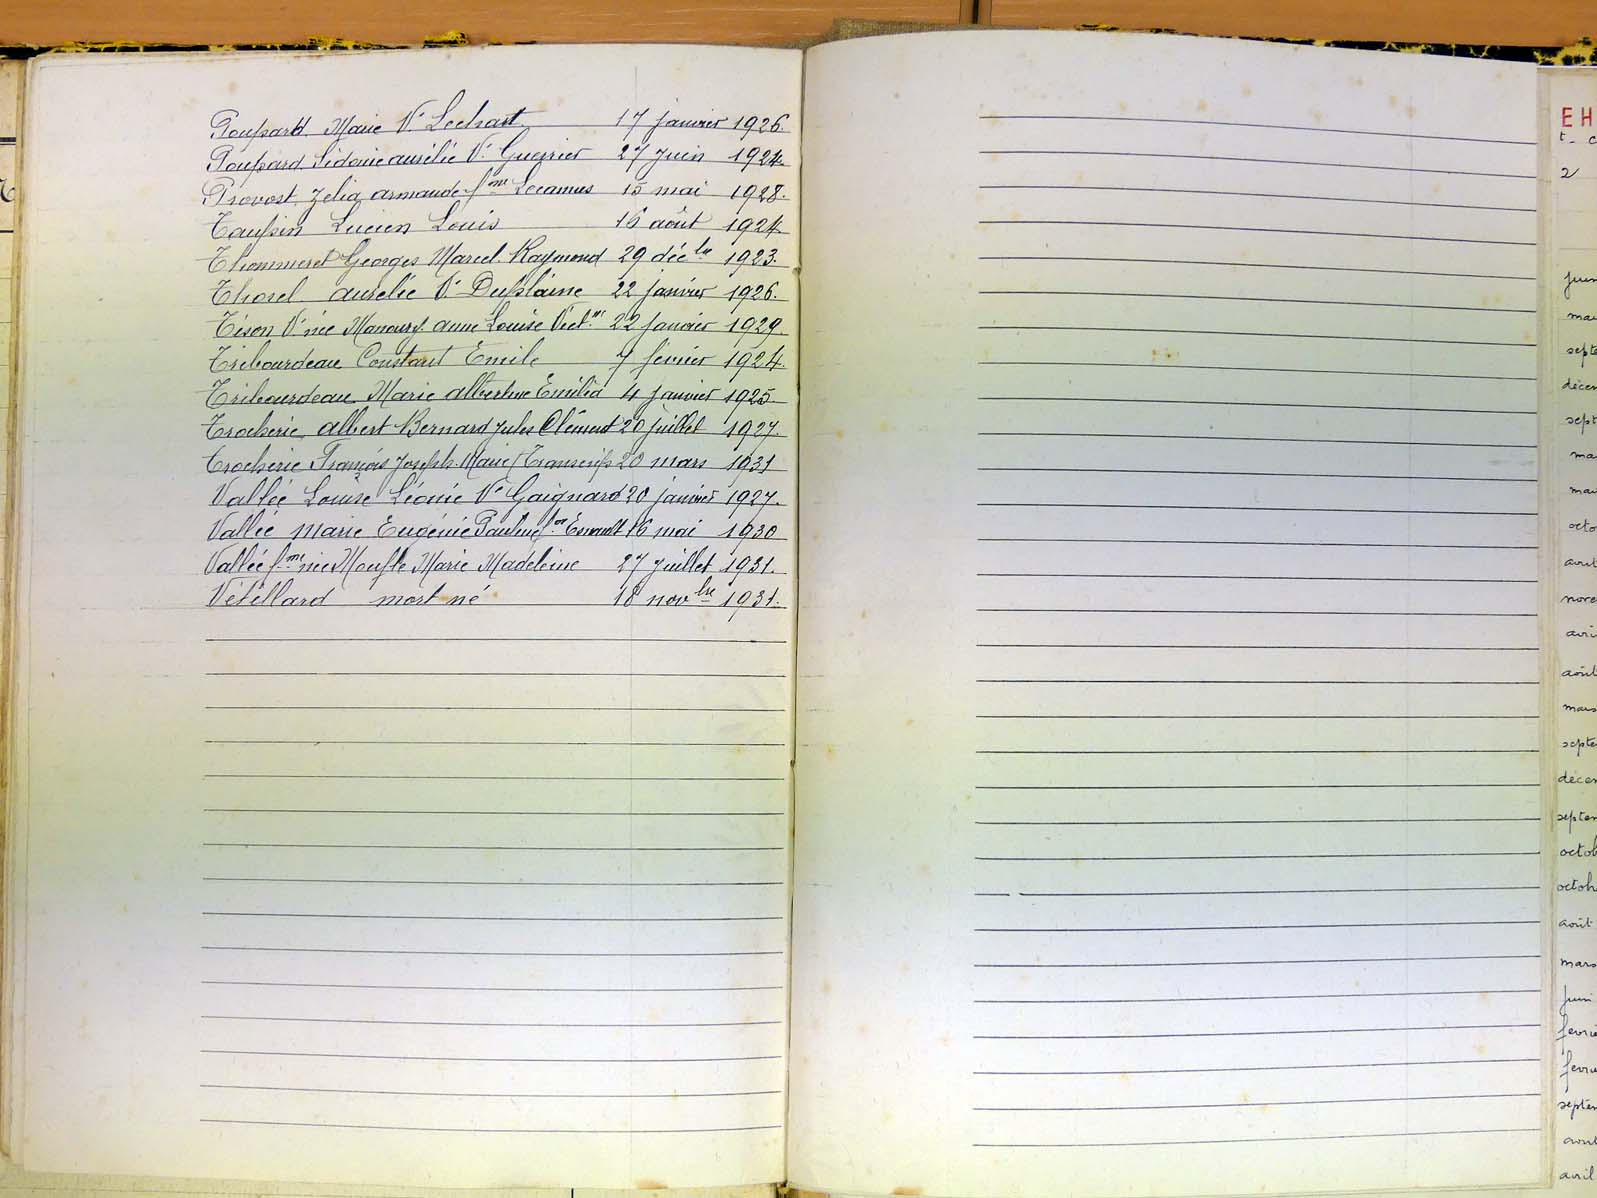 Poupard Marie Vᵉ Lechast 17 janvier 1926.
Poupard Sidonie aurélie Vᵉ Guerrier 27 juin 1924.
Provost Zelia armande fᵐᵉ Lecamus 15 mai 1928.
Taupin Lucien Louis 16 août 1924.
Thommeret Georges Marcel Raymond 29 décᵇʳᵉ 1923.
Thorel aurélie Vᵉ Duplaine 22 janvier 1926.
Tison Vᵉ née Manoury anne Louise Vict.ⁿᵉ 22 janvier 1929.
Tribourdeau Constant Emile 7 février 1924.
Tribourdeau Marie albertine Emilia 4 janvier 1925.
Trocherie albert Bernard Jules Clément 20 juillet 1927.
Trocherie François Joseph Marie (Transcrip 20 mars 1931
Vallée Louise Léonie Vᵉ Gaignard 20 janvier 1927.
Vallée marie Eugénie Pauline fᵐᵉ Esnault 16 mai 1930
Vallée fᵐᵉ née Moufle Marie Madeleine 27 juillet 1931.
Vétillard mort né 18 novᵇʳᵉ 1931.
EH
t. c
2
juin
mai
septe
décem
sept
ma
mai
octo
avril
nove
avri
août
mars
septe
décem
septem
octob
octob
août
mars
juin
févrie
févrie
septem
août
avril